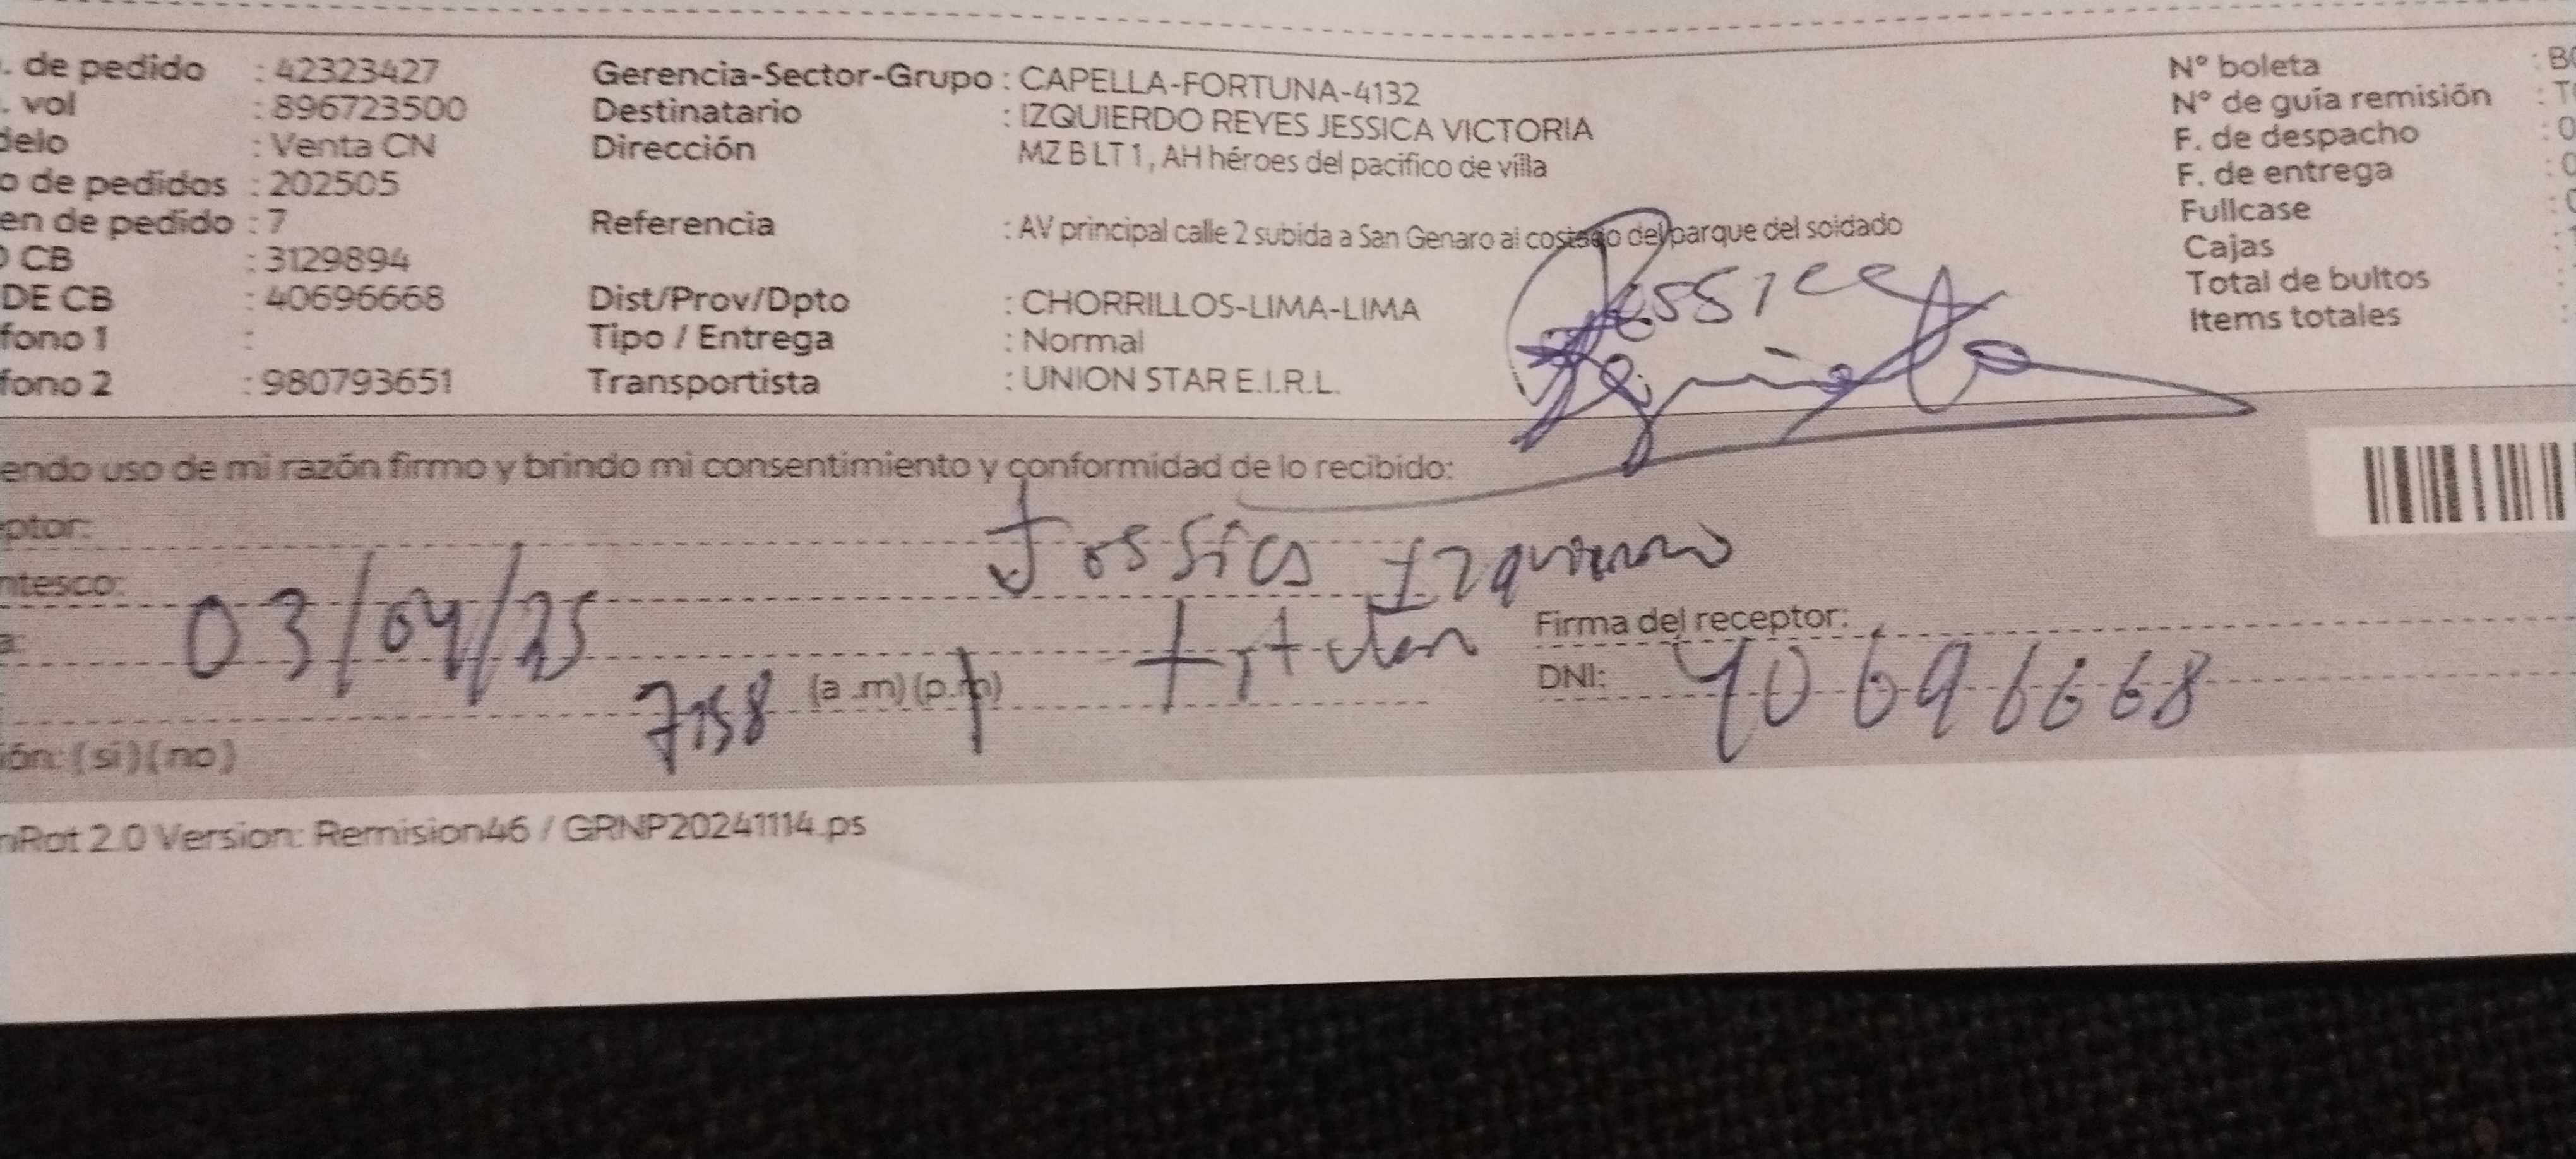 . de pedido : 42323427 Gerencia-Sector-Grupo : CAPELLA-FORTUNA-4132 N° boleta : B
. vol : 896723500 Destinatario : IZQUIERDO REYES JESSICA VICTORIA N° de guía remisión : T
delo : Venta CN Dirección MZ B LT 1, AH héroes del pacifico de villa F. de despacho : 0
o de pedidos : 202505 F. de entrega : 0
en de pedido : 7 Referencia : AV principal calle 2 subida a San Genaro al costado del parque del soldado Fullcase
CB : 3129894 Cajas
DE CB : 40696668 Dist/Prov/Dpto : CHORRILLOS-LIMA-LIMA Total de bultos
fono 1 : Tipo / Entrega : Normal Items totales
fono 2 : 980793651 Transportista : UNION STAR E.I.R.L.
Jessica
endo uso de mi razón firmo y brindo mi consentimiento y conformidad de lo recibido:
ptor: Jessica Izquierdo
ntesco: titular
a: 03/04/25 Firma del receptor:
7:58 (a.m) (p.m) DNI: 40696668
ión: (si) (no)
nRot 2.0 Version: Remision46 / GRNP20241114.ps